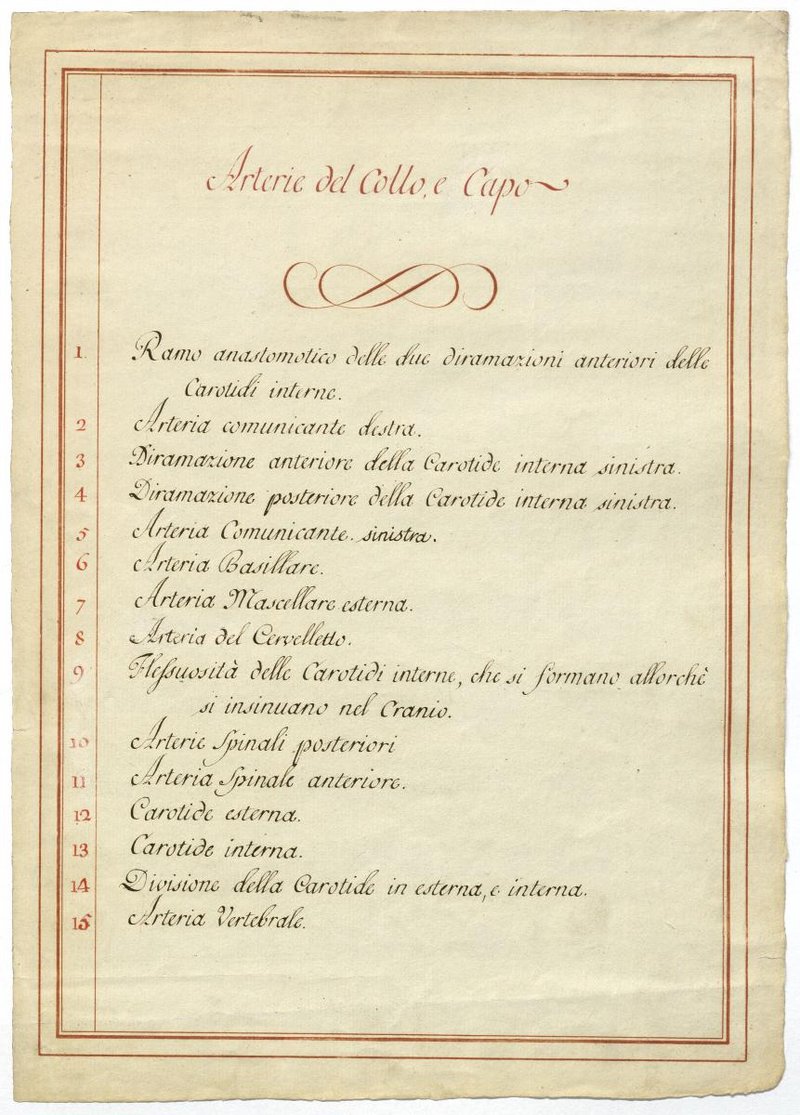 Arterie del Collo, e Capo
1. Ramo anastomotico delle due diramazioni anteriori delle
Carotidi interne.
2 Arteria comunicante destra.
3 Diramazione anteriore della Carotide interna sinistra.
4 Diramazione posteriore della Carotide interna sinistra.
5 Arteria Comunicante sinistra.
6 Arteria Basillare.
7 Arteria Mascellare esterna.
8 Arteria del Cervelletto.
9 Flessuosità delle Carotidi interne, che si formano allorchè
si insinuano nel Cranio.
10 Arterie Spinali posteriori
11 Arteria Spinale anteriore.
12 Carotide esterna.
13 Carotide interna.
14 Divisione della Carotide in esterna, e interna.
15 Arteria Vertebrale.